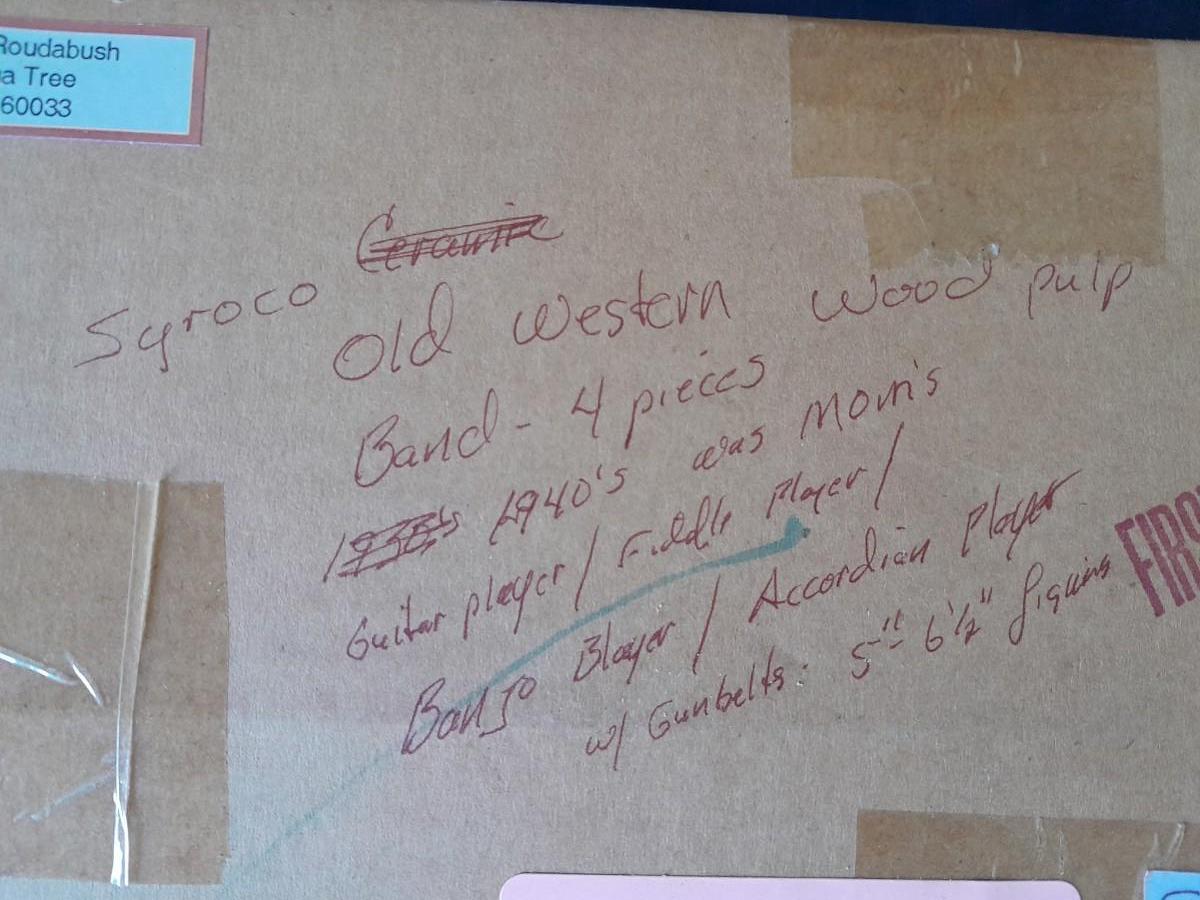 Roudabush
a Tree
60033
Ceramic
Syroco Old Western Wood pulp
Band - 4 pieces
1930's 1940's was Mom's
Guitar player / Fiddle Player /
Banjo Blayer / Accordian Player
w/ Gunbelts. 5"- 6½" figurins
FIRS